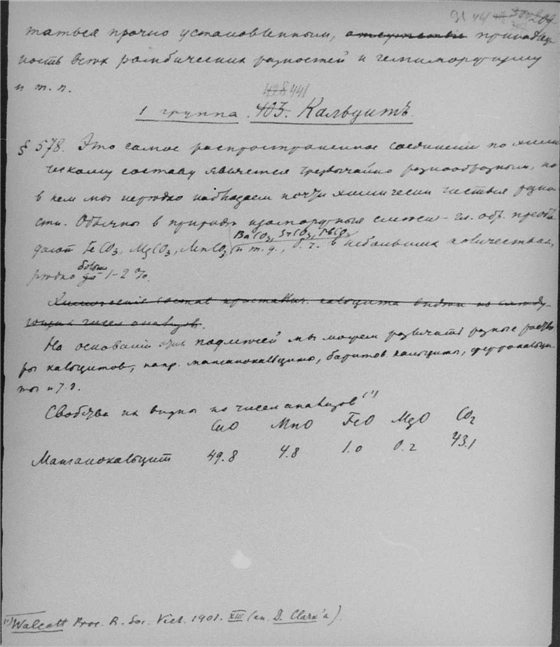 таться прочно установленным, принадлеж
ность всех ромбических разностей к гемиморфизму
и т. п.
441
1 группа. 403. Кальцитъ.
§ 578. Это самое распространенное соединение по хими
ческому составу является чрезвычайно разнообразным, но
в нем мы нередко наблюдаем почти химически чистыя разно
сти. Обычны в природе изоморфныя смеси - гл. обр. преоб
BaCO3, SrCO3, PbCO3
дают FeCO3, MgCO3, MnCO3 и т. д., в небольших количествах,
редко больше 1-2%.
Химический состав кальцита виден из следу
ющих чисел анализов.
На основании этих мы можем различать разные
кальцитов, напр. манганокальциты, баритокальциты, феррокальци
ты и т. д.
Свойства их видны из чисел анализов (1)
CaO MnO FeO MgO CO2
Манганокальцит 49.8 4.8 1.0 0.2 43.1
(1) Walcott Proc. R. Soc. Vict. 1901. XIII (см. D. Clark'a).